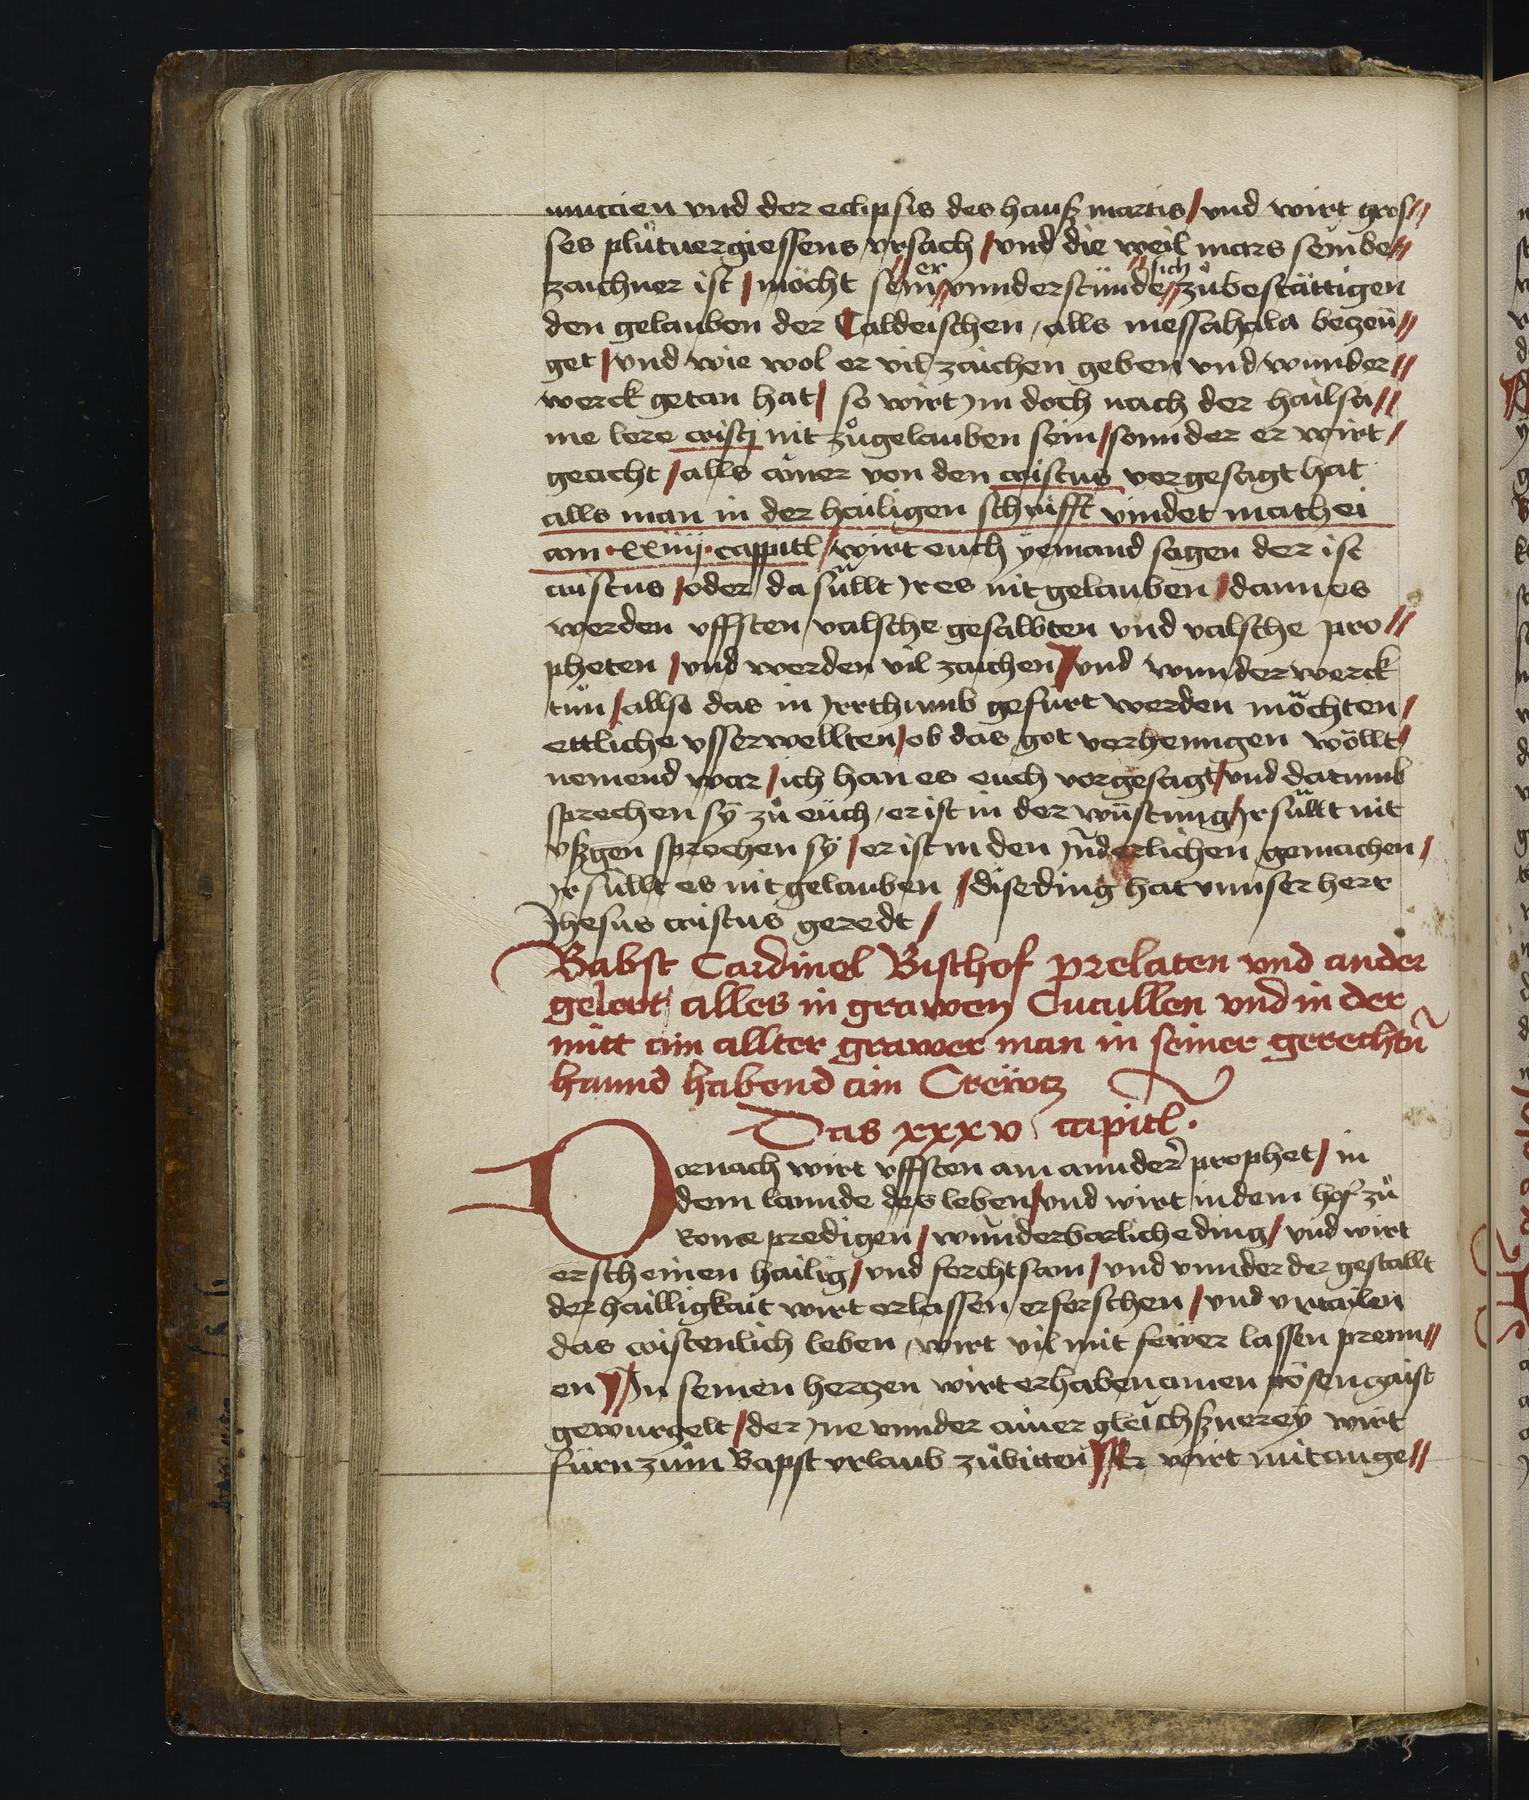 nunctien vnd der eclipsis des hauß martis / vnd wirt gros//
ses plůtuergiessens vrsach / vnd die weil mars sein be//
zaichner ist / möcht sein // er vnnderstünde // sich zůbestättigen
den gelauben der Caldeischen / alls messahala bezeü//
get / vnd wie wol er vil zaichen geben vnd wunder//
werck getan hat / so wirt im doch nach der hailsa//
me lere cristj nit zůgelauben sein / sonnder er wirt /
geacht / alls ainer von den cristus vorgesagt hat
alls man in der hailigen schrifft vindet mathei
am · xxiiij · cappitl / wirt euch yemand sagen der ist
cristus / oder da süllt Jr es nit gelauben / dann es
werden vffsten / valsche gesalbten vnd valsche pro//
pheten / vnd werden vil zaichen / vnd wunderwerck
tůn / allso das in Jrrthumb gefürt werden möchten /
ettliche vsserwellten / ob das got verhenngen wöllt /
nemend war / ich han es euch vorgesagt / vnd darumb
sprechen sÿ zů eüch / er ist in der wüstung / Jr süllt nit
vßgen sprechen sÿ / er ist in den Jnderlichen gemachen /
Jr süllt es nit gelauben / dise ding hat vnnser herr
Jhesus cristus geredt /
Babst Cardinel Bischof prelaten vnd ander
gelert alles in grawen Cucullen vnd in der
mitt ain allter grawer man in seiner gerechtn
hannd habend ain Creütz
Das xxxv capitl ·
Darnach wirt vffsten ain annder prophet / in
dem lannde des leben / vnd wirt in dem hof zů
Rome predigen / wunderbarliche ding / vnd wirt
erscheinen hailig / vnd forchtsam / vnd vnnder der gestallt
der hailligkait wirt er lassen erforschen / vnd vrtailen
das cristenlich leben / wirt vil mit fewer lassen prenn//
en / In seinem hertzen wirt er haben ainen pösen gaist
gewurtzelt / der Jne vnnder ainer gleichßnerey wirt
fürn zům Bapst vrlaub zůbitten / Er wirt mit ange//